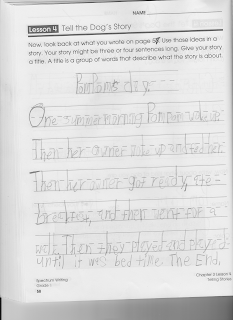 NAME
Lesson 4 Tell the Dog's Story
Now, look back at what you wrote on page 57. Use those ideas in a
story. Your story might be three or four sentences long. Give your story
a title. A title is a group of words that describe what the story is about.
PomPom's day
One summer morning PomPom woke up
Then her owner woke up and fed her
Then her owner got ready, ate
breakfast, and then went for a
walk. Then they played and played
until it was bed time. The End.
Spectrum Writing
Grade 1
58
Chapter 3 Lesson 4
Telling Stories